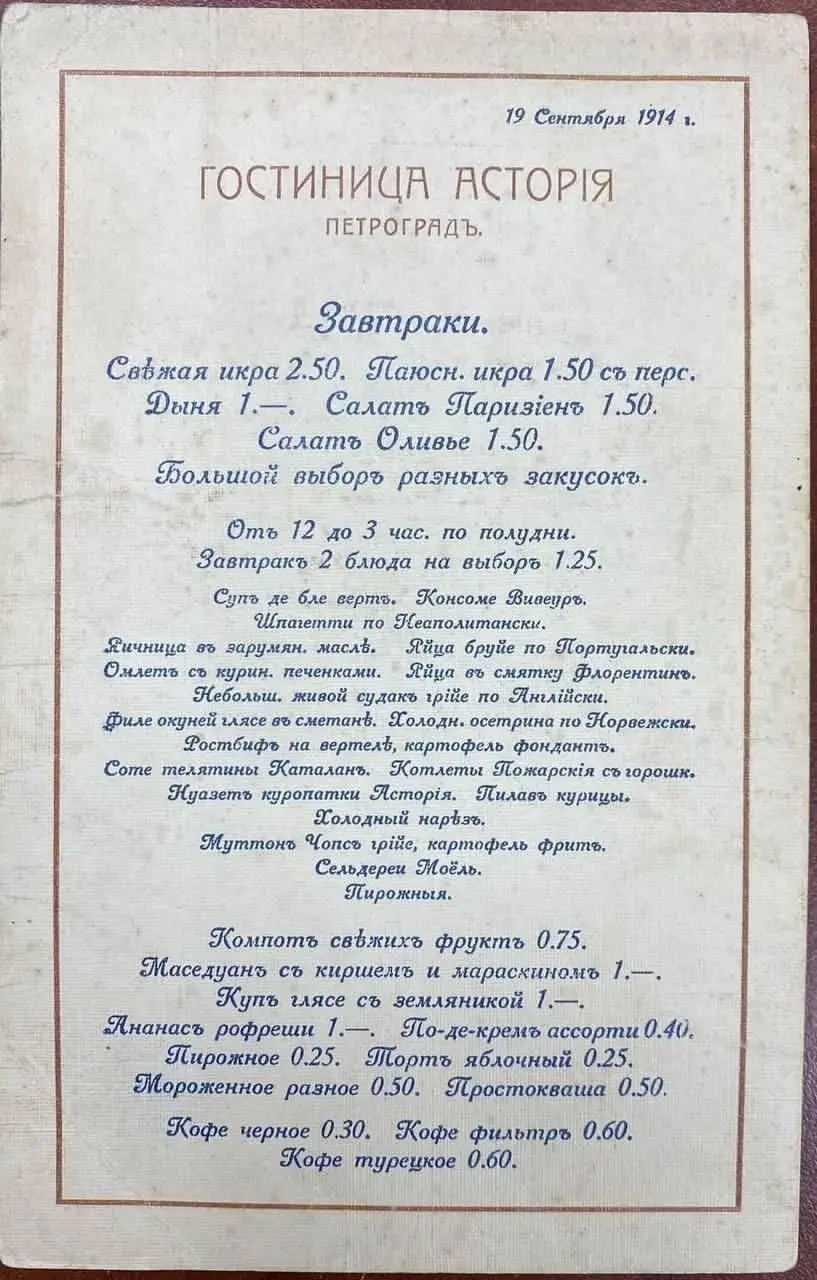 19 Сентября 1914 г.
ГОСТИНИЦА АСТОРІЯ
ПЕТРОГРАДЪ.
Завтраки.
Свѣжая икра 2.50. Паюсн. икра 1.50 съ перс.
Дыня 1.—. Салатъ Паризіенъ 1.50.
Салатъ Оливье 1.50.
Большой выборъ разныхъ закусокъ.
Отъ 12 до 3 час. по полудни.
Завтракъ 2 блюда на выборъ 1.25.
Супъ де бле вертъ. Консоме Вивеуръ.
Шпагетти по Неаполитански.
Яичница въ зарумян. маслѣ. Яйца бруйе по Португальски.
Омлетъ съ курин. печенками. Яйца въ смятку Флорентинъ.
Небольш. живой судакъ грійе по Англійски.
Филе окуней глясе въ сметанѣ. Холодн. осетрина по Норвежски.
Ростбифъ на вертелѣ, картофель фондантъ.
Соте телятины Каталанъ. Котлеты Пожарскія съ горошк.
Нуазетъ куропатки Асторія. Пилавъ курицы.
Холодный нарѣзъ.
Муттонъ Чопсъ грійе, картофель фритъ.
Сельдереи Моёль.
Пирожныя.
Компотъ свѣжихъ фруктъ 0.75.
Маседуанъ съ киршемъ и мараскиномъ 1.—.
Купъ глясе съ земляникой 1.—.
Ананасъ рофреши 1.—. По-де-кремъ ассорти 0.40.
Пирожное 0.25. Тортъ яблочный 0.25.
Мороженное разное 0.50. Простокваша 0.50.
Кофе черное 0.30. Кофе фильтръ 0.60.
Кофе турецкое 0.60.